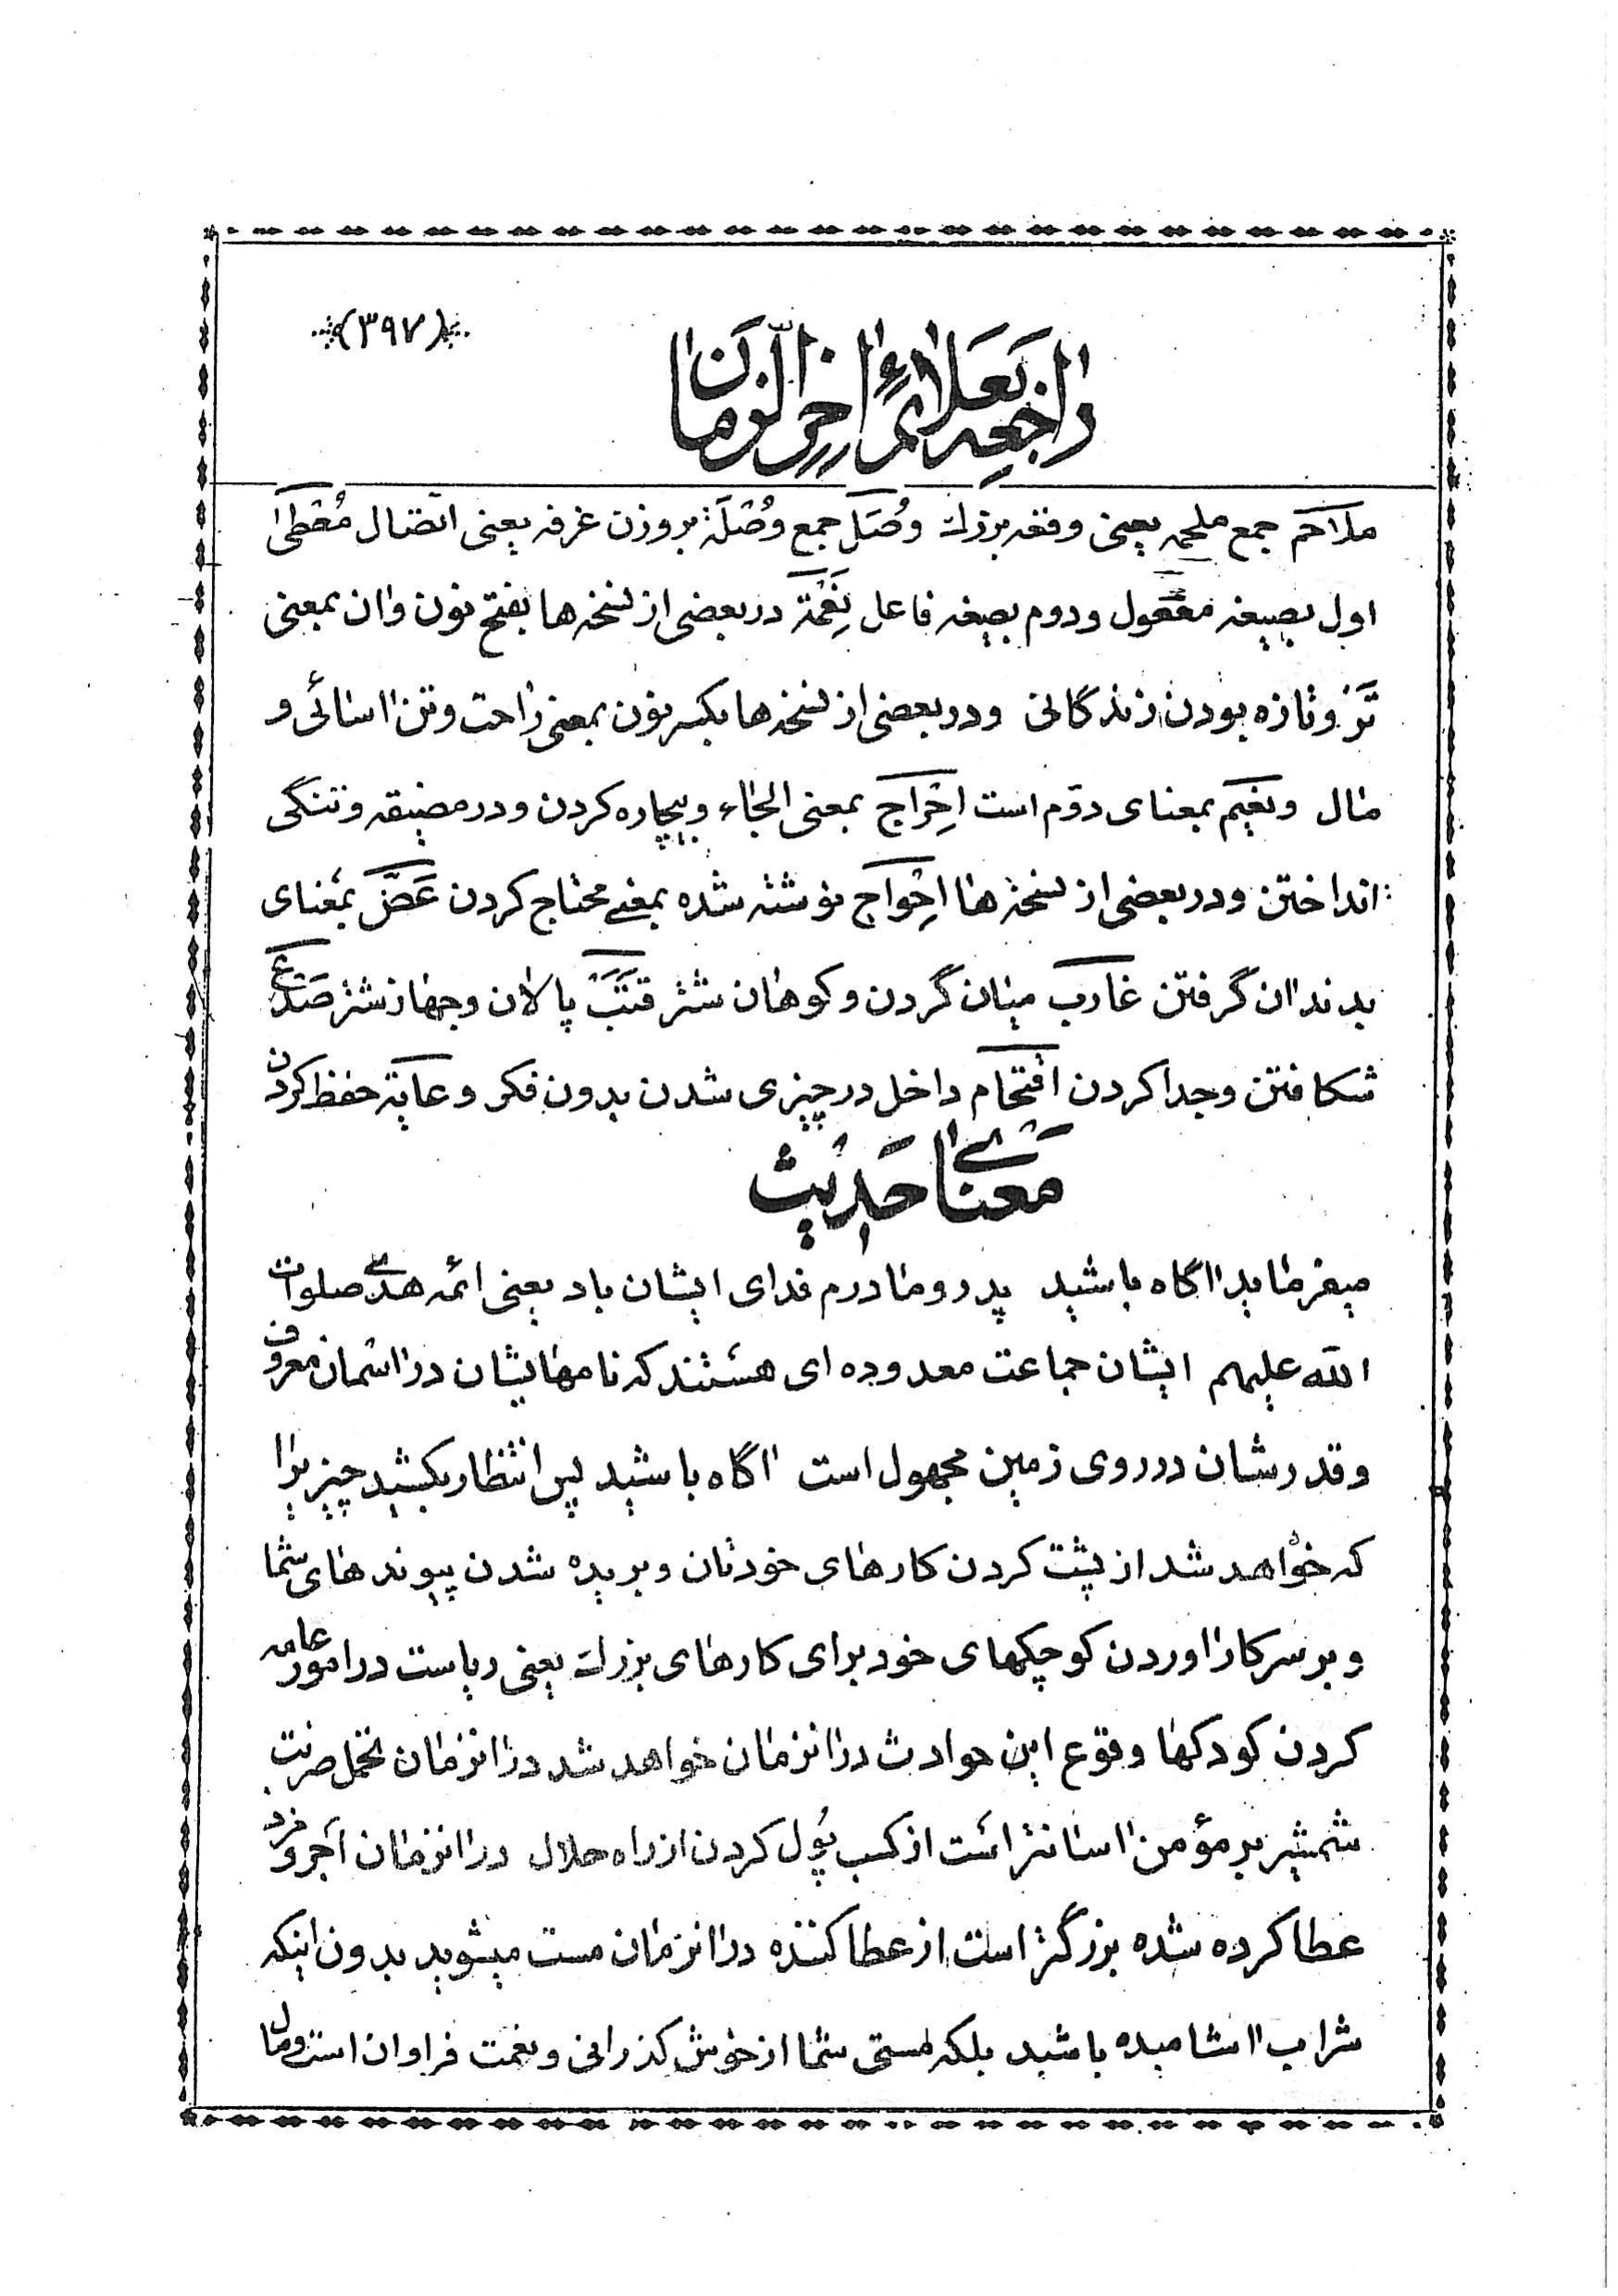 (۳۹۷)
راجعه بعلائم اخر الزمان
ملاحم جمع ملحمه یعنی وقعه بزرك وُصَل جمع وُصْلَة بروزن غرفه یعنی اتّصال مُعْطیٰ
اول بصیغه مفعول و دوم بصیغه فاعل نِعْمَة در بعضی از نسخه ها بفتح نون و ان بمعنی
تَر و تازه بودن زندگانی و در بعضی از نسخه ها بکسر نون بمعنی راحت و تن اسائی و
مال و نعیم بمعنای دوّم است اِحْراج بمعنی الجاء و بیچاره کردن و در مضیقه و تنگی
انداختن و در بعضی از نسخه ها اِحْواج نوشته شده بمعنے محتاج کردن عَضّ بمعنای
بدندان گرفتن غارب میان گردن و کوهان شتر قَتَب پالان و جهاز شتر صَدْع
شکافتن و جدا کردن اقتحام داخل در چیزی شدن بدون فکر و عایة حفظ کردن
معنای حدیث
میفرماید اگاه باشید پدر و مادرم فدای ایشان باد یعنی ائمه هدی صلوات
الله علیهم ایشان جماعت معدوده ای هستند که نامهایشان در اسمان معروف
و قدرشان در روی زمین مجهول است اگاه باشید پس انتظار بکشید چیزیرا
که خواهد شد از پشت کردن کارهای خودتان و بریده شدن پیوندهای شما
و بر سر کار اوردن کوچکهای خود برای کارهای بزرك یعنی ریاست در امور عامه
کردن کودکها وقوع این حوادث در انزمان خواهد شد در انزمان تحمل ضربت
شمشیر بر مؤمن اسانتر است از کسب پول کردن از راه حلال در انزمان اجر و مزد
عطا کرده شده بزرگتر است از عطا کننده در انزمان مست میشوید بدون اینکه
شراب اشامیده باشید بلکه مستی شما از خوش گذرانی و نعمت فراوان است و مال